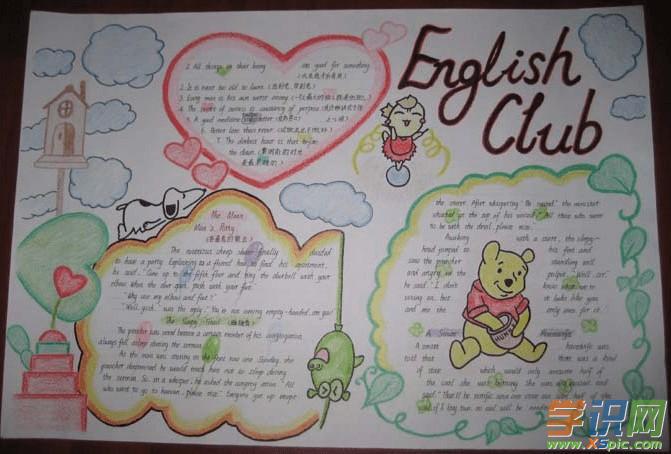 English
Club
1. All things in their being are good for something.
(天生我才必有用)
2. It is never too old to learn. (活到老,学到老)
3. Every man is his own worst enemy.
4. The secret of success is constancy of purpose.
5. A good medicine
6. Better late than never.
7. The darkest hour is that before
the dawn. (黎明前的时光
是最黑暗的)
The Mean
Man's Party
(吝啬鬼的聚会)
The notorious cheap skate finally decided
to have a party. Explaining to a friend how to find his apartment,
he said, "Come up to the fifth floor and ring the doorbell with your
elbow. When the door open, push with your foot."
"Why use my elbow and foot?"
"Well, gosh," was the reply. "You're not coming empty-handed, are you?"
The Sleepy
The preacher was vexed because a certain member of his congregation
always fell asleep during the sermon.
As the man was snoring in the front row one Sunday, the
preacher determined he would teach him not to sleep during
the sermon. So, in a whisper, he asked the congregation. "All
who want to go to heaven, please rise." Everyone got up except
the snorer. After whispering "Be seated", the minister
shouted at the top of his voice, "All those who want
to be with the devil, please rise."
Awaking with a start, the sleepy-
head jumped to his feet and
saw the preacher standing tall
and angry in the pulpit. "Well, sir,"
he said, "I don't know what we're
voting on, but it looks like you
and me are the only ones for it."
HUNNY
A Smart
A smart housewife was
told that there was a kind
of stove which would only consume half of
the coal she was burning. She was very excited, and
said, "That'll be terrific. Since one stove can save half of the
coal, if I buy two, no coal will be needed
学识网
www.XSpic.com